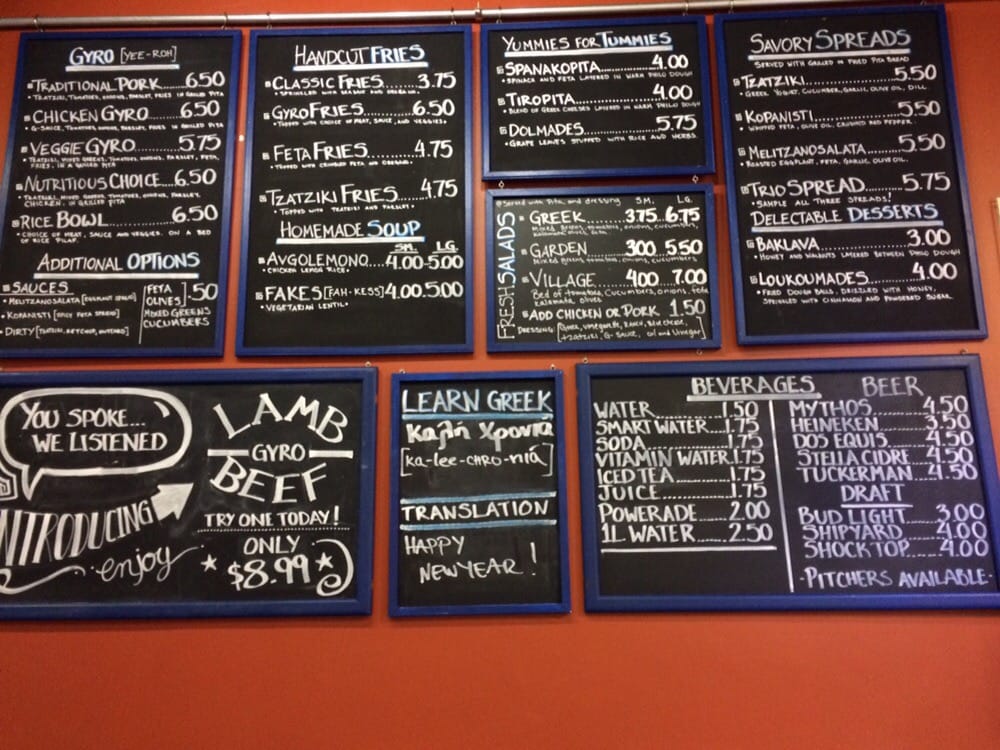 GYRO [YEE-ROH]
TRADITIONAL PORK 6.50
TZATZIKI, TOMATOES, ONIONS, PARSLEY, FRIES IN GRILLED PITA
CHICKEN GYRO 6.50
G-SAUCE, TOMATOES, ONIONS, PARSLEY, FRIES IN GRILLED PITA
VEGGIE GYRO 5.75
TZATZIKI, MIXED GREENS, TOMATOES, ONIONS, PARSLEY, FETA,
FRIES, IN A GRILLED PITA
NUTRITIOUS CHOICE 6.50
TZATZIKI, MIXED GREENS, TOMATOES, ONIONS, PARSLEY,
CHICKEN, IN GRILLED PITA
RICE BOWL 6.50
CHOICE OF MEAT, SAUCE AND VEGGIES. ON A BED
OF RICE PILAF.
ADDITIONAL OPTIONS
SAUCES
MELITZANOSALATA [EGGPLANT SPREAD]
KOPANISTI [SPICY FETA SPREAD]
DIRTY [TZATZIKI, KETCHUP, MUSTARD]
FETA
OLIVES
MIXED GREENS
CUCUMBERS
.50
HANDCUT FRIES
CLASSIC FRIES 3.75
SPRINKLED WITH SEASALT AND OREGANO.
GYRO FRIES 6.50
TOPPED WITH CHOICE OF MEAT, SAUCE, AND VEGGIES.
FETA FRIES 4.75
TOPPED WITH CRUMBLED FETA AND OREGANO.
TZATZIKI FRIES 4.75
TOPPED WITH TZATZIKI AND PARSLEY.
HOMEMADE SOUP
SM. LG.
AVGOLEMONO 4.00 5.00
CHICKEN LEMON RICE.
FAKES [FAH-KESS] 4.00 5.00
VEGETARIAN LENTIL.
YUMMIES FOR TUMMIES
SPANAKOPITA 4.00
SPINACH AND FETA LAYERED IN WARM PHILO DOUGH
TIROPITA 4.00
BLEND OF GREEK CHEESES LAYERED IN WARM PHILO DOUGH
DOLMADES 5.75
GRAPE LEAVES STUFFED WITH RICE AND HERBS.
FRESH SALADS
Served with Pita, and dressing SM. LG.
GREEK 3.75 6.75
Mixed greens, tomatoes, onions, cucumbers,
kalamata olives, feta
GARDEN 3.00 5.50
Mixed greens, tomatoes, onions, cucumbers
VILLAGE 4.00 7.00
Bed of tomatoes, Cucumbers, onions, feta
kalamata, olives
ADD CHICKEN OR PORK 1.50
DRESSING: [Greek, vinegarette, RANCH, Blue cheese,
tzatziki, G-SAUCE, Oil and Vinegar]
SAVORY SPREADS
SERVED WITH GRILLED OR FRIED PITA BREAD
TZATZIKI 5.50
GREEK YOGURT, CUCUMBER, GARLIC, OLIVE OIL, DILL
KOPANISTI 5.50
WHIPPED FETA, OLIVE OIL, CRUSHED RED PEPPER.
MELITZANOSALATA 5.50
ROASTED EGGPLANT, FETA, GARLIC, OLIVE OIL.
TRIO SPREAD 5.75
SAMPLE ALL THREE SPREADS!
DELECTABLE DESSERTS
BAKLAVA 3.00
HONEY AND WALNUTS LAYERED BETWEEN PHILO DOUGH
LOUKOUMADES 4.00
FRIED DOUGH BALLS, DRIZZLED WITH HONEY,
SPRINKLED WITH CINNAMON AND POWDERED SUGAR.
YOU SPOKE...
WE LISTENED
NTRODUCING
enjoy
LAMB
GYRO
BEEF
TRY ONE TODAY!
ONLY
$8.99
LEARN GREEK
Καλή Χρονιά
[ka-lee-CHRO-nia]
TRANSLATION
HAPPY
NEW YEAR!
BEVERAGES
WATER 1.50
SMART WATER 1.75
SODA 1.75
VITAMIN WATER 1.75
ICED TEA 1.75
JUICE 1.75
POWERADE 2.00
1L. WATER 2.50
BEER
MYTHOS 4.50
HEINEKEN 3.50
DOS EQUIS 4.50
STELLA CIDRE 4.50
TUCKERMAN 4.50
DRAFT
BUD LIGHT 3.00
SHIPYARD 4.00
SHOCKTOP 4.00
-PITCHERS AVAILABLE-